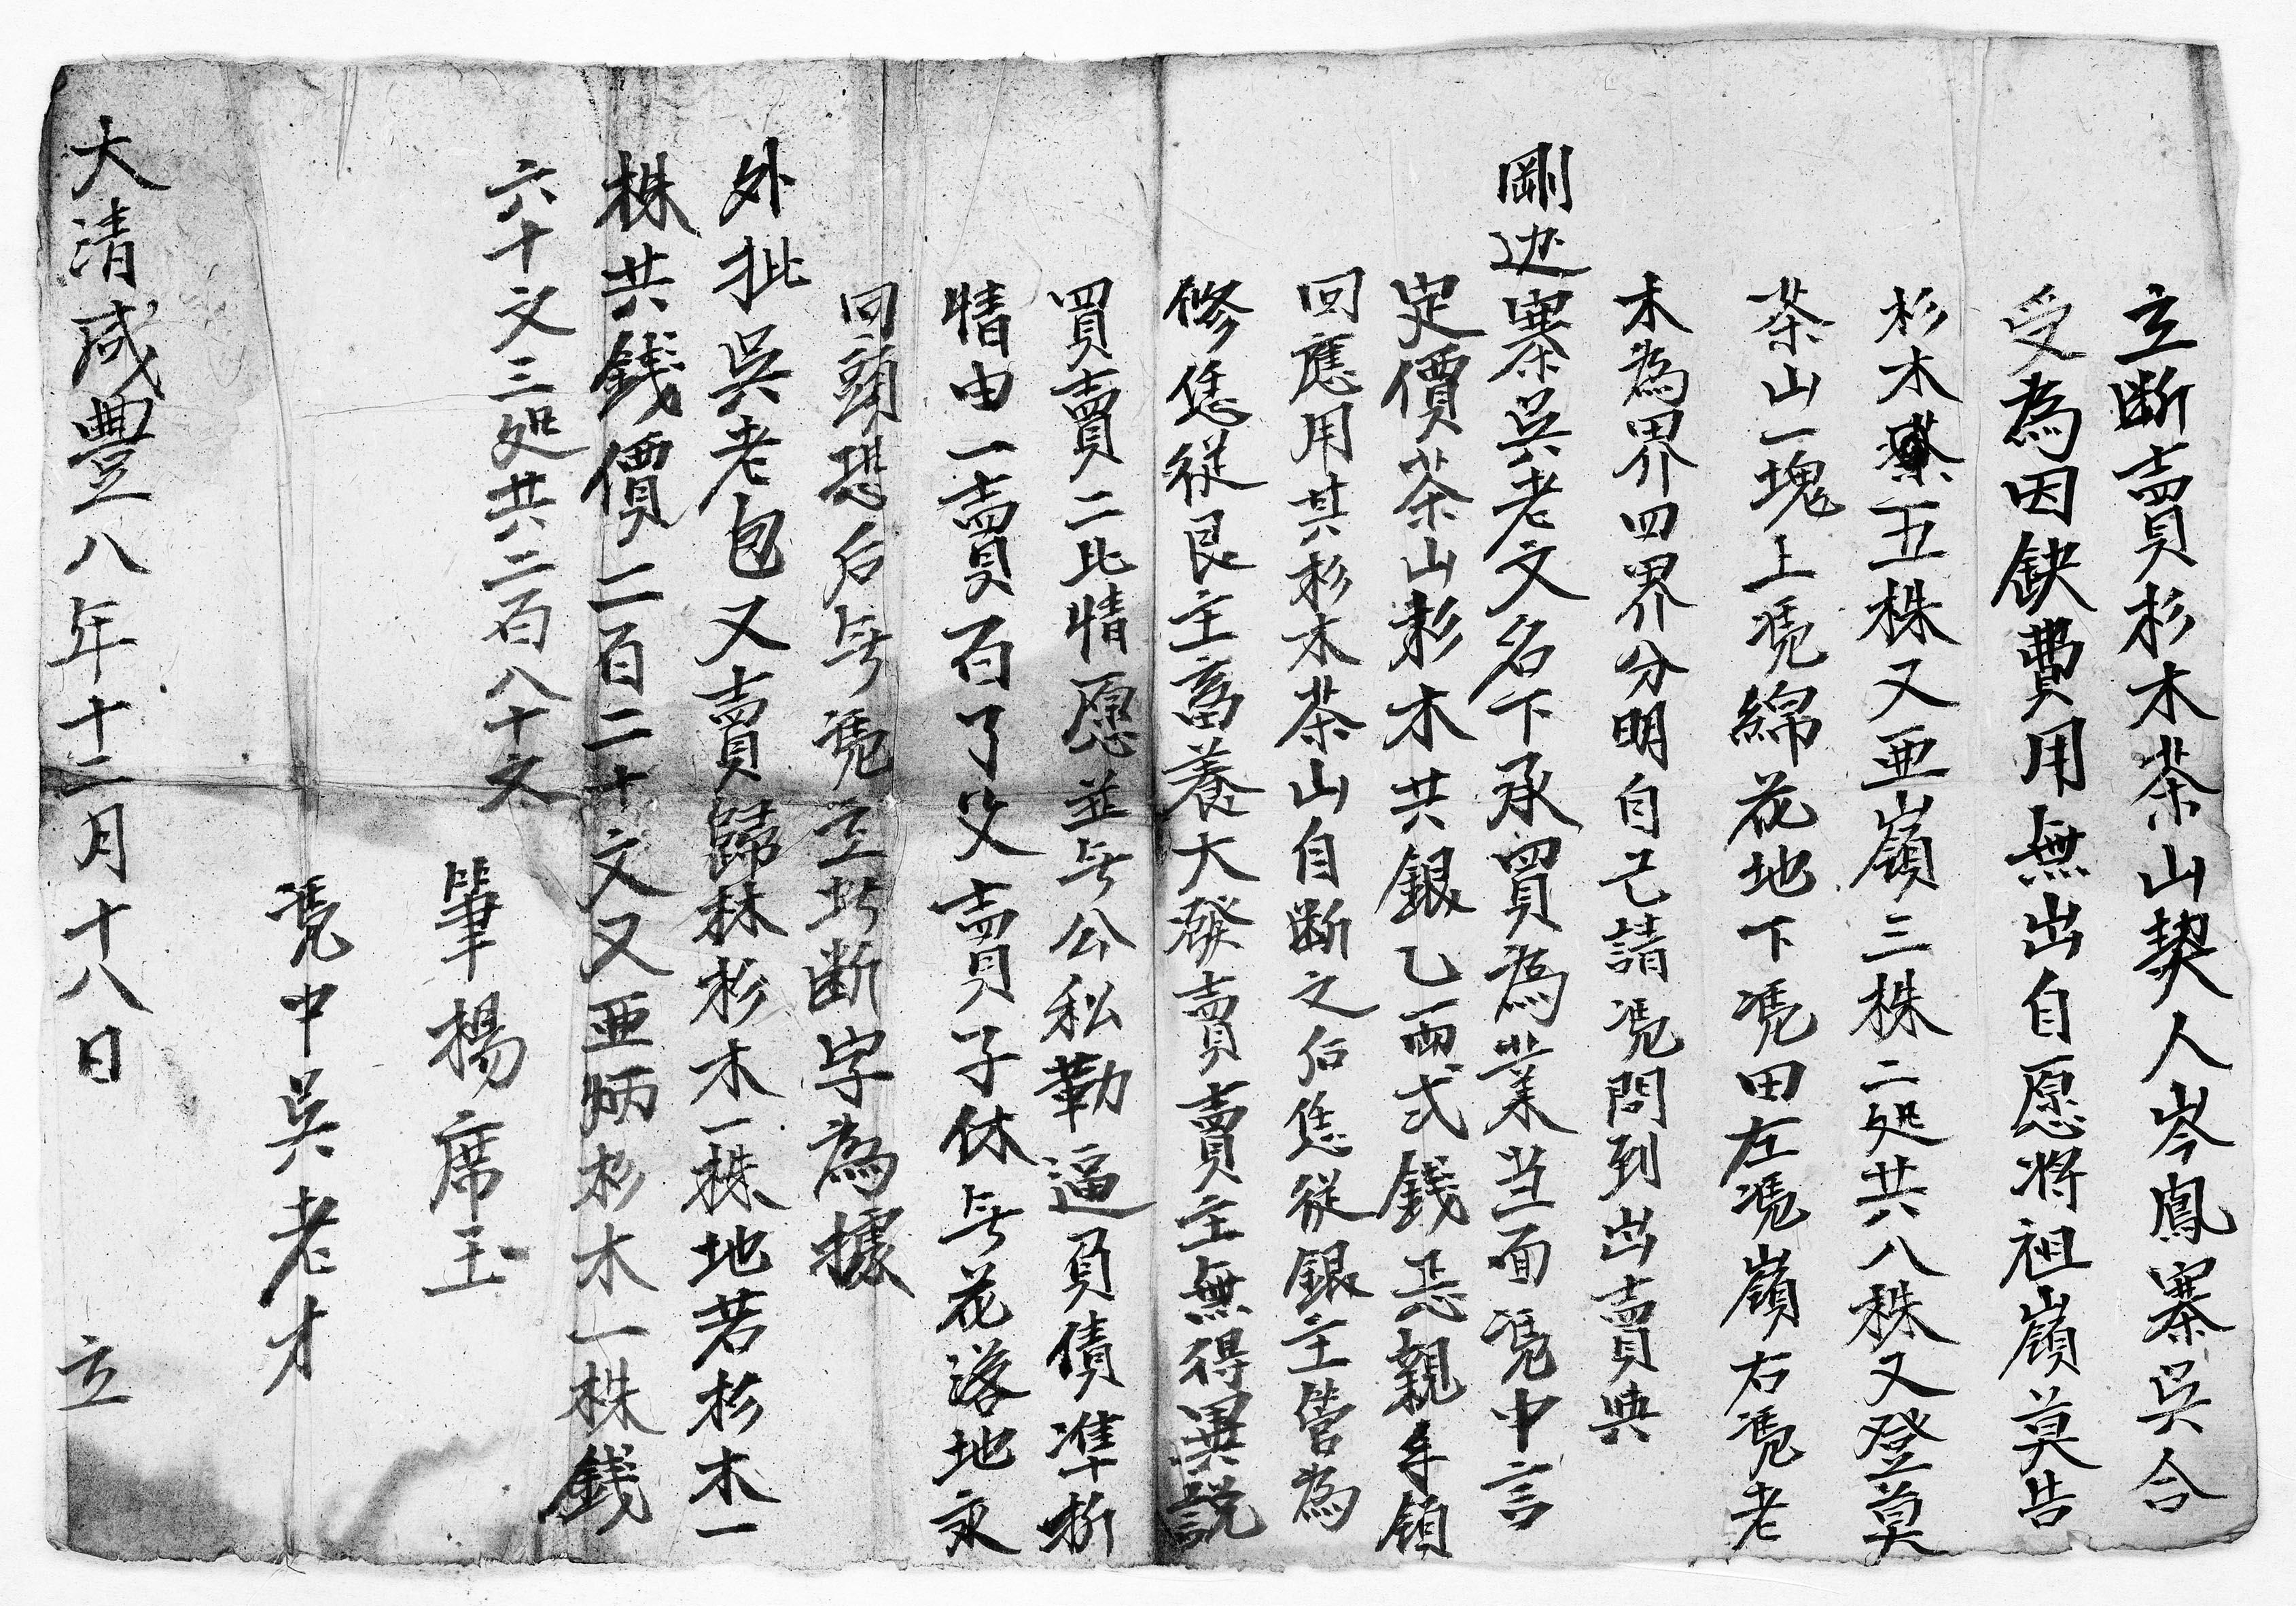 立断賣杉木茶山契人岑鳳寨吳合
受為因缺費用無出自愿将祖嶺莫告
杉木五株又亜嶺三株二処共八株又登莫
茶山一塊上凴綿花地下凴田左凴嶺右凴老
木為界四界分明自己請凴問到出賣典
剛边寨吳老文名下承買為業当面凴中言
定價茶山彩木共銀乙両弍錢㤙親手領
回應用其杉木茶山自断之后恁従銀主管為
修恁従艮主畜養大發賣賣主無得異説
買賣二比情愿並无公私勒逼負債準折
情由一賣百了父賣子休无花落地永
回頭恐后无凴立此断字為據
外批吳老包又賣歸林杉木一株地若杉木一
株共錢價二百二十文又亜炳杉木一株錢
六十文三処共二百八十文
筆楊席玉
凴中吳老才
大清咸豐八年十二月十八日立